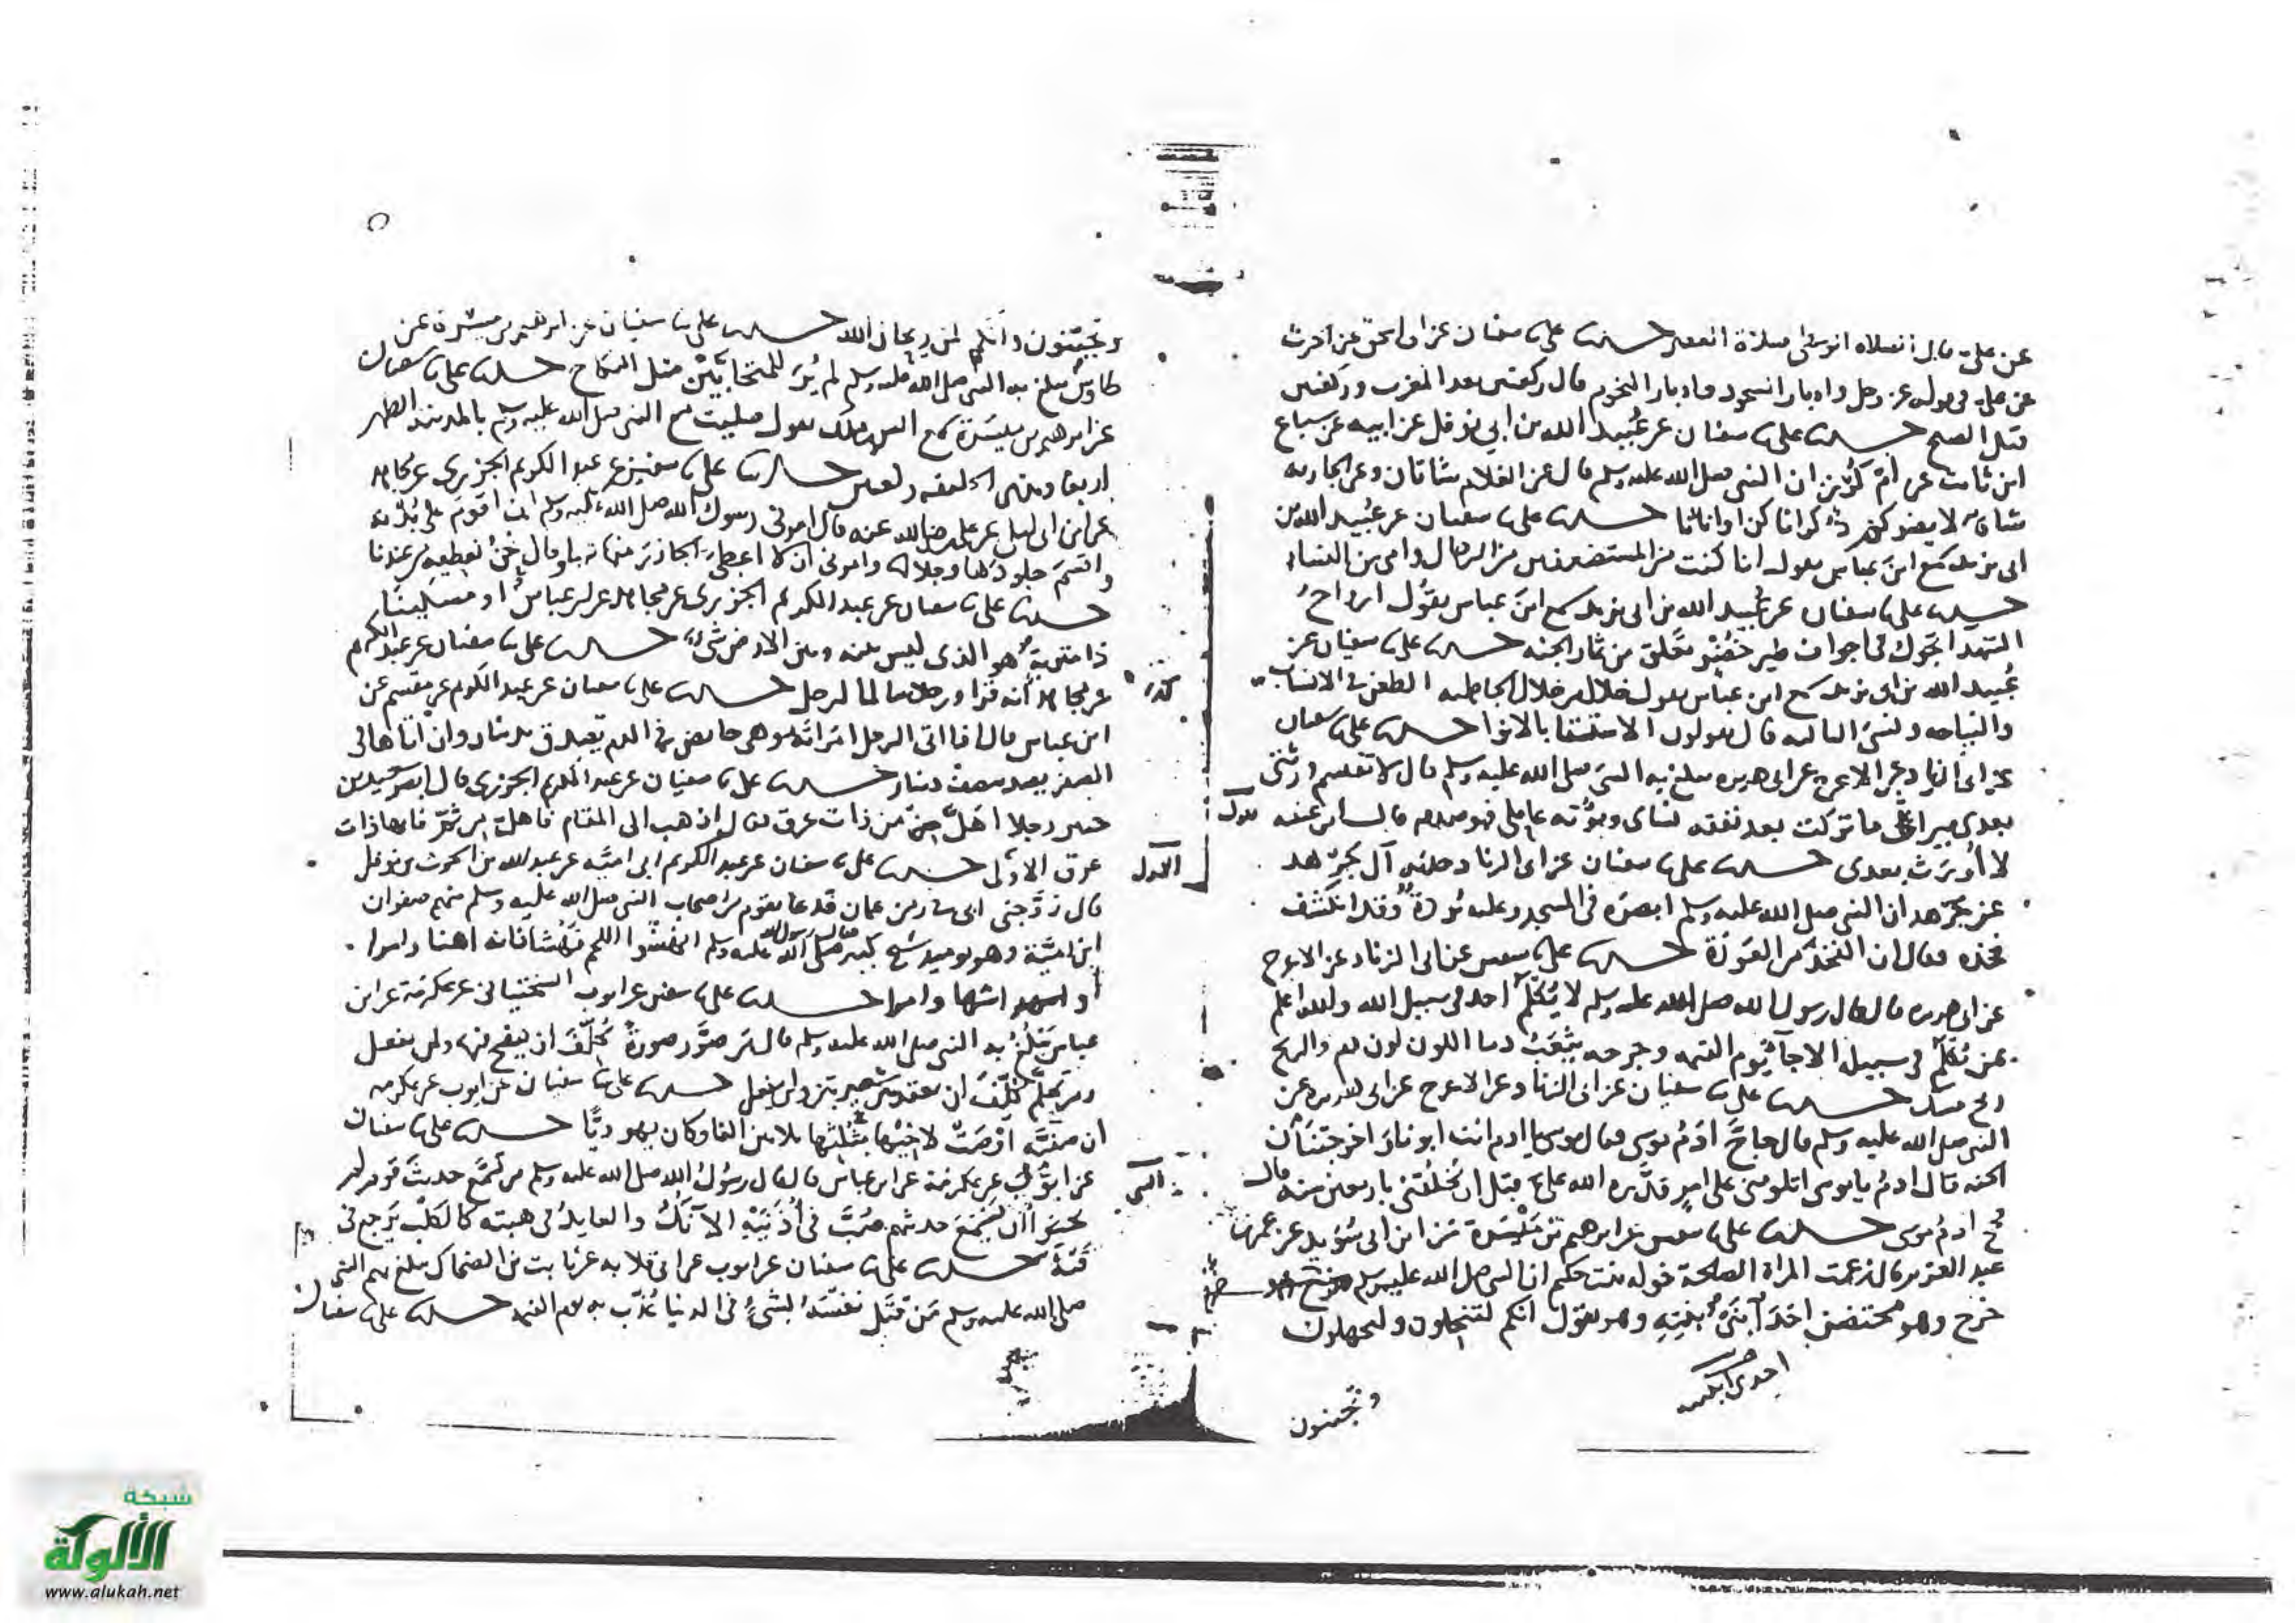 عن علي قال الصلاه الوسطى صلاة العصر حدثنا علي ثنا سفيان عن ابي اسحق عن الحرث
عن علي في قوله عز وجل وادبار السجود وادبار النجوم قال ركعتين بعد المغرب وركعتين
قبل الصبح حدثنا علي ثنا سفيان عن عُبيد الله بن ابي يزيد عن ابيه عن سباع
ابن ثابت عن امّ كُرْز ان النبي صلى الله عليه وسلم قال عن الغلام شاتان وعن الجاريه
شاة لا يضركم ذكرانا كن او اناثا حدثنا علي ثنا سفيان عن عبيد الله بن
ابي يزيد سمع ابنَ عباس يقول انا كنت من المستضعفين من الرجال وامي من النساء
حدثنا علي ثنا سفيان عن عُبيد الله بن ابي يزيد سمع ابنَ عباس يقُول ارواحُ
الشهدا تجول في اجواف طير خُضْر تَعلق من ثمار الجنه حدثنا علي ثنا سفيان عن
عُبيد الله بن ابي يزيد سمع ابن عباس يقول خلال من خلال الجاهليه الطعن في الانساب
والنياحه ونسيَ الثالثه قال يقولون الاستسقا بالانوا حدثنا علي ثنا سفيان
عن ابي الزناد عن الاعرج عن ابي هريره يبلغ به النبيَ صلى الله عليه وسلم قال لا تقتسم ورثتي
بعدي ميراثي ما تركت بعد نفقه نساي ومؤنه عاملي فهو صدقه قال ابن عيينه يقول
لا أُورَث بعدي حدثنا علي ثنا سفيان عن ابي الزناد حدثني آل جَرْهد
عن جَرْهد ان النبي صلى الله عليه وسلم ابصره في المسجد وعليه بُردةٌ وقد انكشف
فخذه فقال ان الفخذ من العَورَة حدثنا علي ثنا سفين عن ابي الزناد عن الاعرج
عن ابي هريره قال قال رسول الله صلى الله عليه وسلم لا يُكْلَمُ احد في سبيل الله والله اعلم
بمن يُكْلَمُ في سبيله الا جآ يوم القيمه وجرحه يثعَبُ دما اللون لون دم والريح
ريح مسك حدثنا علي ثنا سفيان عن ابي الزناد عن الاعرج عن ابي هريره عن
النبي صلى الله عليه وسلم قال حاجّ ادَمُ موسى فقال موسى يا ادم انت ابونا اخرجتنا من
الجنه قال ادمُ يا موسى اتلومني على امرٍ قدَّره الله عليَّ قبل ان يخلُقني باربعين سنه قال
فحج ادمُ موسى حدثنا علي ثنا سفين عن ابرهيم بن مَيْسَرة عن ابن ابي سُوَيد عن عمر بن
عبد العزيز قال زعمت المراة الصالحة خوله بنت حكيم ان النبي صلى الله عليه وسلم
خرج وهو محتضن احَدَ ابنَيْ ابنتِهِ وهو يقول انكم لتبخلون ولتجهلون
احدى ابنيه
وتجبنون
الاول
وتجبّنون وانّكم لمن ريحان الله حدثنا علي ثنا سفيان عن ابرهيم بن ميسرة عن
طاوس يبلغ به النبي صلى الله عليه وسلم لم يُرَ للمتحابَّيْن مثل النكاح حدثنا علي ثنا سفيان
عن ابرهيم بن ميسَرة سمع انس بن ملك يقول صليت مع النبي صلى الله عليه وسلم بالمدينه الظهر
اربعا وبذي الحليفه ركعتين حدثنا علي ثنا سفين عن عبد الكريم الجزري عن مجاهد
عن ابن ابي ليلى عن علي رضي الله عنه قال امرني رسول الله صلى الله عليه وسلم ان اقومَ على بُدْنه
واقسمَ جلودَها وجلالها وامرني ان لا اعطي الجازرَ منها شيا وقال نحنُ نعطيه من عندنا
حدثنا علي ثنا سفيان عن عبد الكريم الجزري عن مجاهد عن ابن عباس او مسكينًا
ذا متربةٍ هو الذي ليس بينه وبين الارض شيءٌ حدثنا علي ثنا سفيان عن عبد الكريم
عن مجاهد أنه قرا ورجلا سالما لرجل حدثنا علي ثنا سفيان عن عبد الكريم عن مقسم عن
ابن عباس قال اذا اتى الرجل امراتَه وهي حايض في الدم تصدق بدينار وان اتاها في
الصفره بنصف دينار حدثنا علي ثنا سفيان عن عبد الكريم الجزري قال ابصر سعيد بن
جبير رجلا اهَلَّ من ذات عرق فقال اذهب الى المقام فاهلّ من ثَمَّ فانها ذات
عرق الاُولى حدثنا علي ثنا سفيان عن عبد الكريم ابي اميَّه عن عبد الله بن الحرث بن نوفل
قال زوَّجني ابي زمن عثمان فدعا بقوم من اصحاب النبي صلى الله عليه وسلم منهم صفوان
ابن اميَّة وهو يوميذ شيخ كبير فقال قال رسول الله صلى الله عليه وسلم انهشوا اللحم نَهْشا فانه اهنا وامرا
او اشها وامرا حدثنا علي ثنا سفين عن ايوب السختياني عن عكرمة عن ابن
عباس يَبْلُغُ به النبي صلى الله عليه وسلم قال مَن صوَّر صورةً كُلِّفَ ان ينفخ فيها ولن يفعل
ومن تحلَّم كُلِّفَ ان يعقد بين شعيرتين ولن يفعل حدثنا علي ثنا سفيان عن ايوب عن عكرمه
ان صفيَّه اَوْصَتْ لاخيْها بثُلثها ثلاثين الفا وكان يهوديًّا حدثنا علي ثنا سفيان
عن ايوُّبَ عن عكرمة عن ابن عباس قال قال رسُولُ الله صلى الله عليه وسلم من تَسَمَّع حديثَ قوم لم
يحبوا أن يُسْمَعَ حديثهم صُبَّ في أُذنَيْهِ الآنُكُ والعايدُ في هبته كالكلْب يَرجع في
قَيْئه حدثنا علي ثنا سفيان عن ايوب عن ابي قلابه عن ثابت بن الضحاك يبلغ به النبي
صلى الله عليه وسلم مَن قتَل نفسَهُ بشيءٍ في الدنيا عُذّب به يوم القيمه حدثنا علي ثنا سفيان
شبكة
الألوكة
www.alukah.net